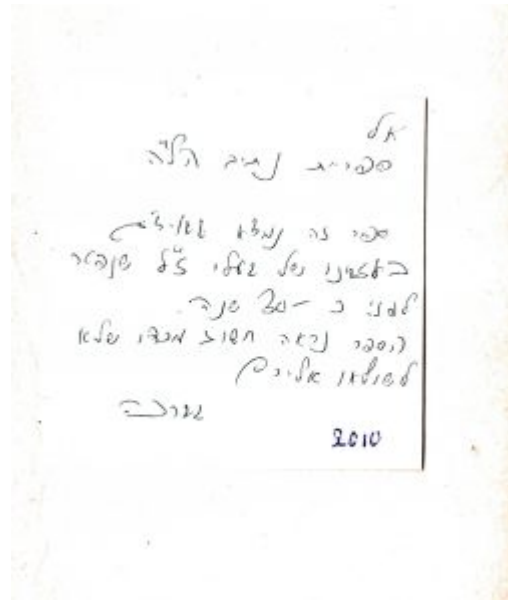 אל
ספריית נתיב הל"ה
ספר זה נמצא
בעזבונו של בעלי ז"ל שנפטר
לפני כ-30 שנה.
הספר נראה חשוב מכדי שלא
לשולחו אליכם
בברכה
2010